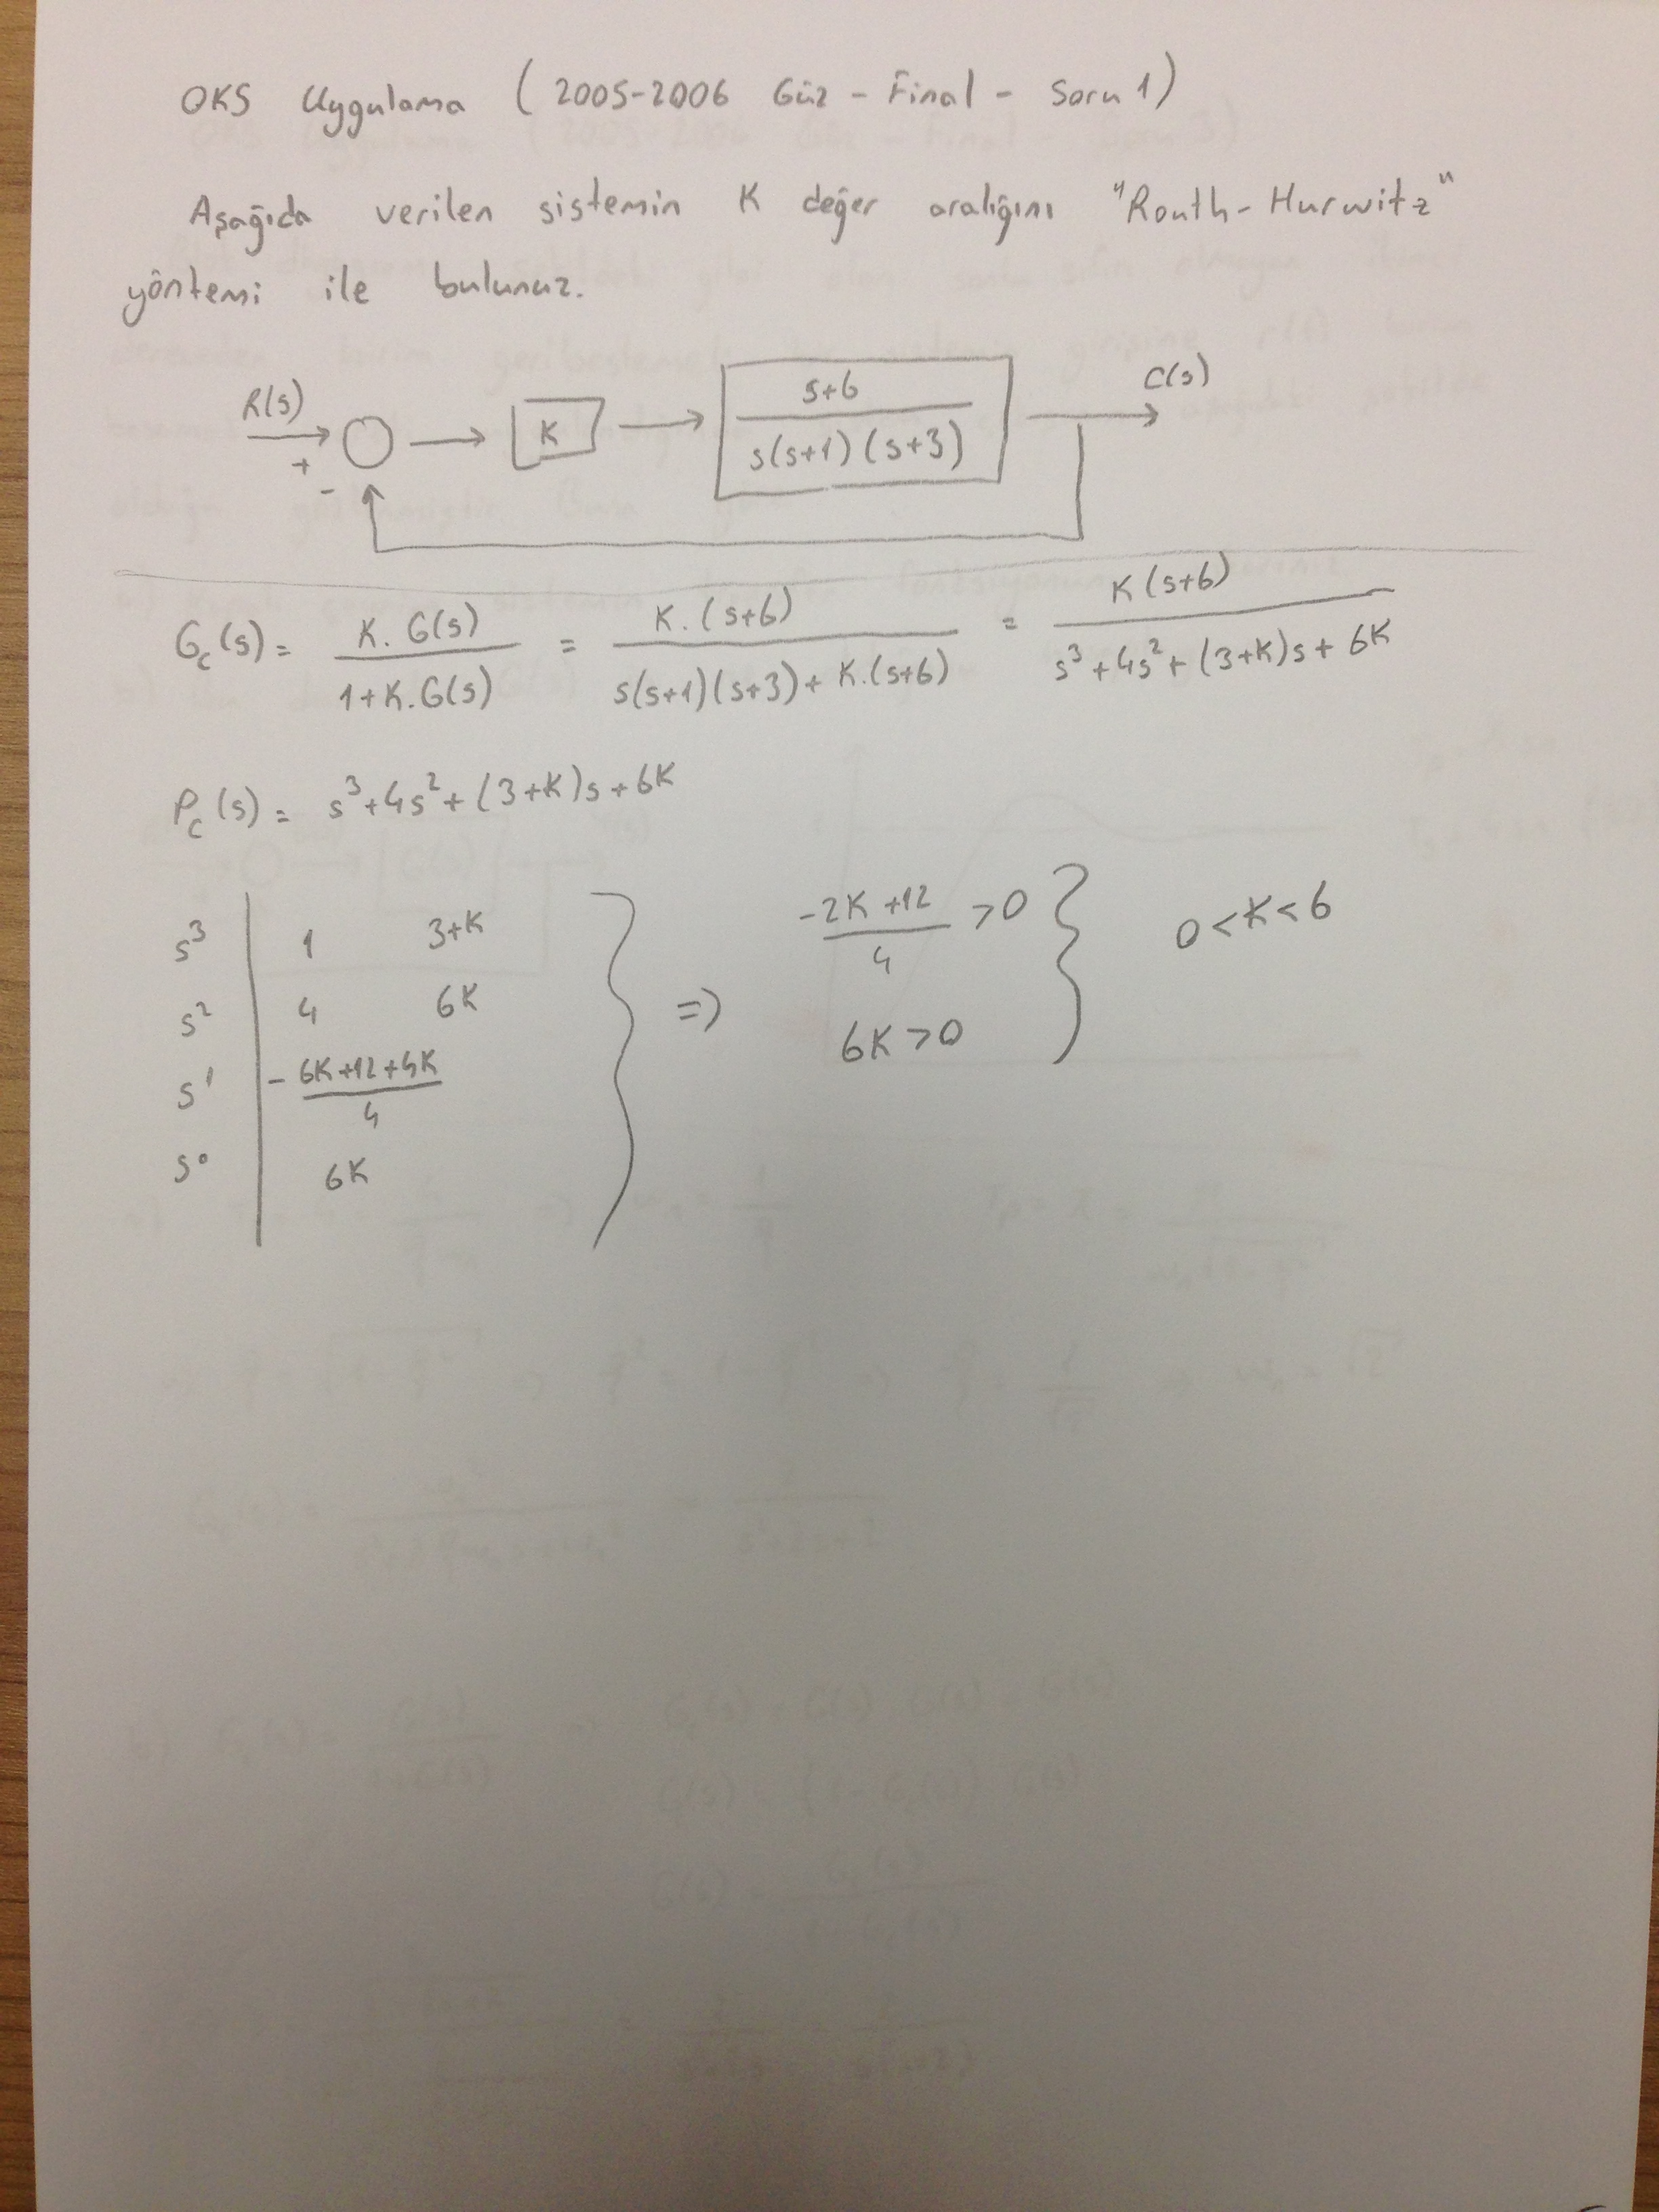 OKS Uygulama (2005-2006 Güz - Final - Soru 1)
Aşağıda verilen sistemin K değer aralığını "Routh-Hurwitz"
yöntemi ile bulunuz.
R(s) + - K s+6 / s(s+1)(s+3) C(s)
Gc(s) = K.G(s) / 1+K.G(s) = K.(s+6) / s(s+1)(s+3)+K.(s+6) = K(s+6) / s³+4s²+(3+K)s+6K
Pc(s) = s³+4s²+(3+K)s+6K
s³ | 1 3+K
s² | 4 6K
s¹ | -6K+12+4K / 4
s⁰ | 6K
=> -2K+12 / 4 >0
6K>0
0<K<6